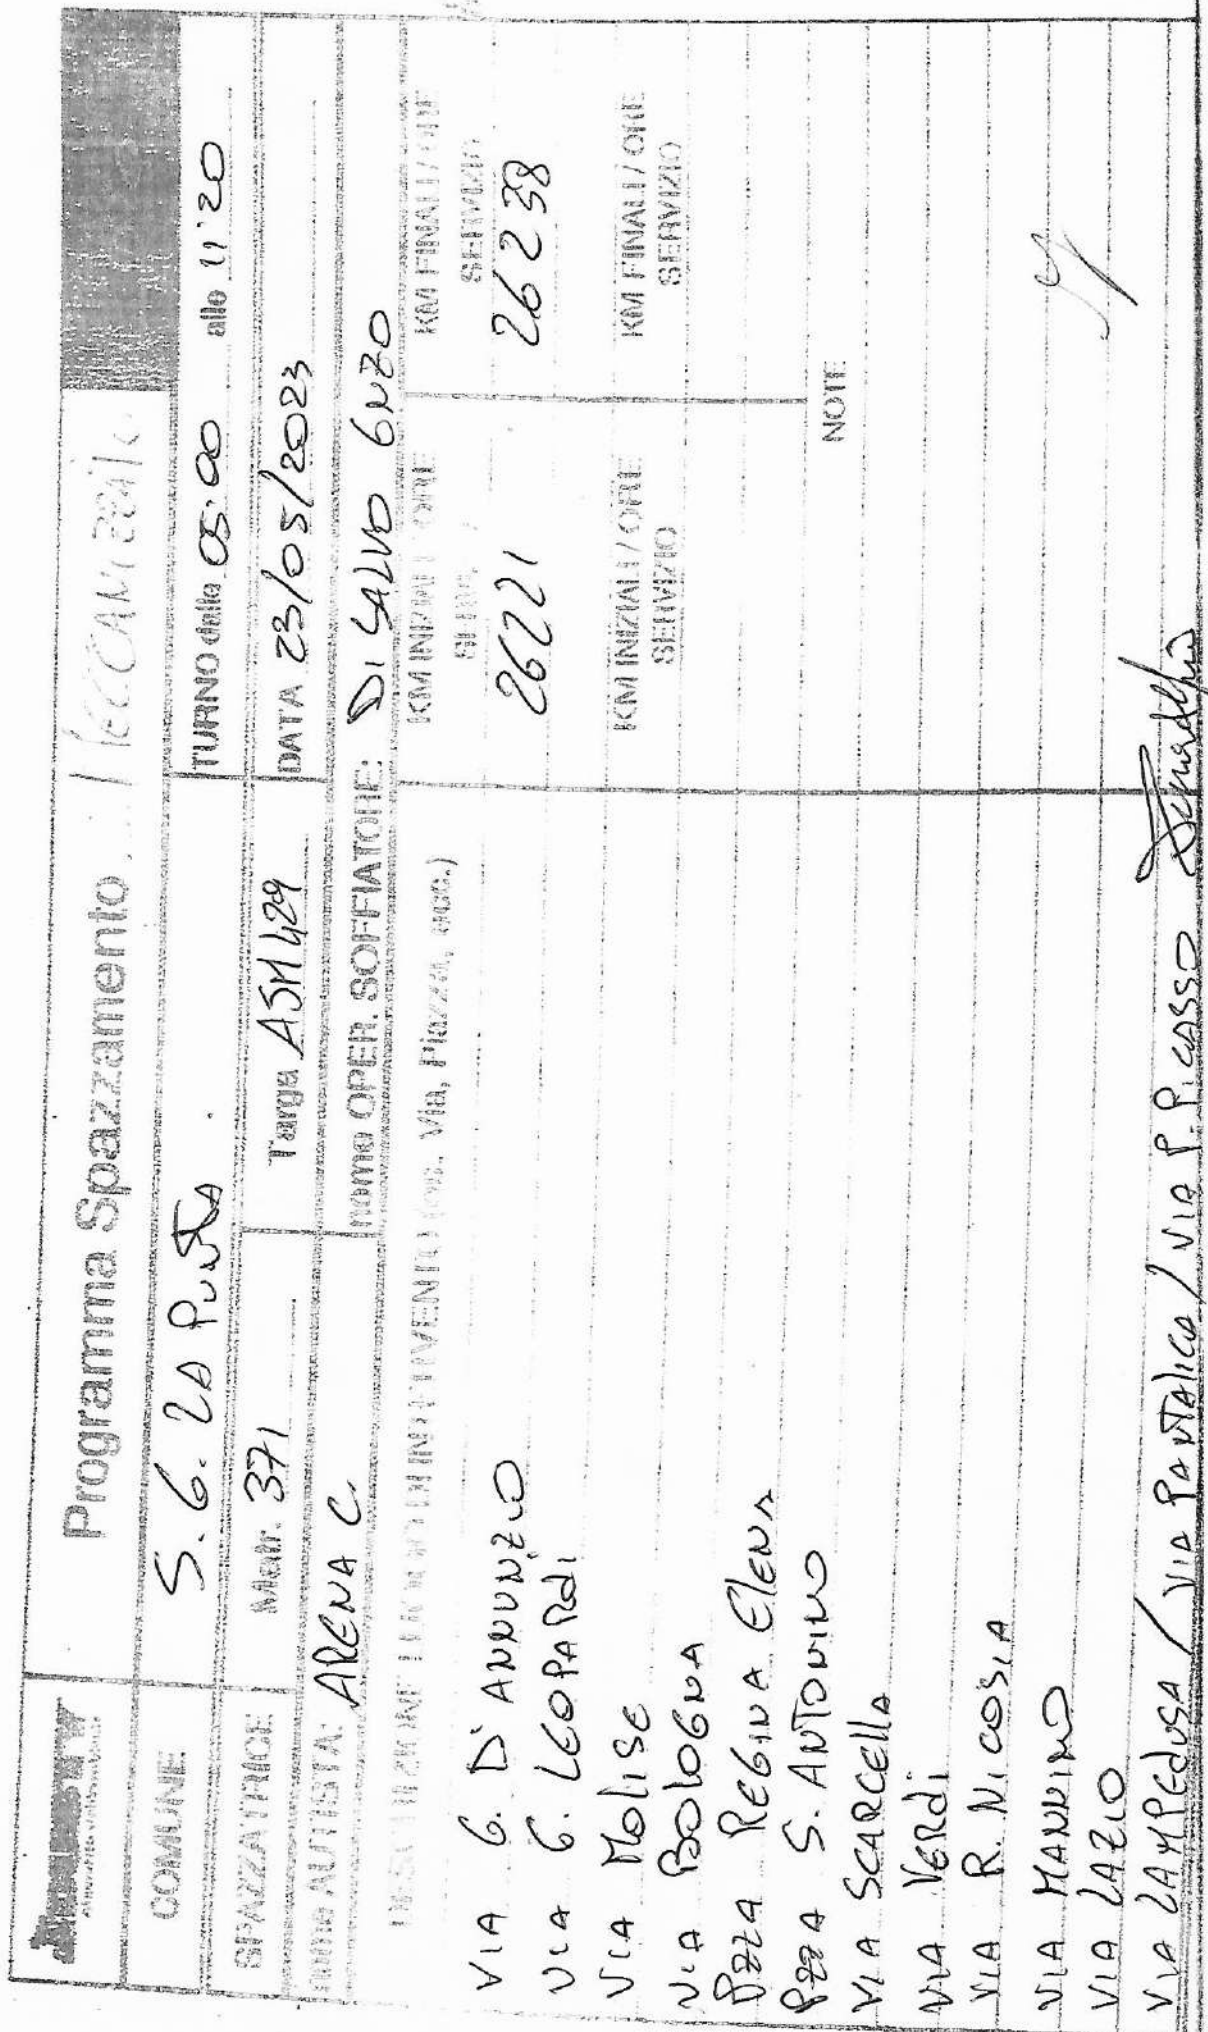 Programma Spazzamento Meccanizzato
COMUNE S. G. LA PUNTA
TURNO dalle 05:00 alle 11:20
SPAZZATRICE Matr. 371 Targa ASM429 DATA 23/05/2023
nome AUTISTA: ARENA C. nome OPER. SOFFIATORE: DI SALVO ENZO
DESCRIZIONE LUOGO DI INTERVENTO (es. Via, Piazza, ecc.)
KM INIZIALI / ORE SERVIZIO
KM FINALI / ORE SERVIZIO
VIA G. D'ANNUNZIO 26221 26238
VIA G. LEOPARDI
VIA MOLISE
KM INIZIALI / ORE SERVIZIO
KM FINALI / ORE SERVIZIO
VIA BOLOGNA
PZZA REGINA ELENA
PZZA S. ANTONINO
NOTE
VIA SCARCELLA
VIA VERDI
VIA R. NICOSIA
VIA MANNINO
VIA LAZIO
VIA LAMPEDUSA / VIA PANTALICA / VIA P. PICASSO